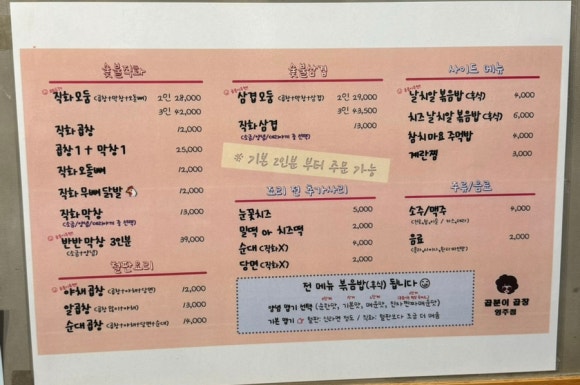 숯불직화
직화모둠 (곱창+막창+오돌뼈) 2인 28,000
3인 42,000
직화곱창 12,000
곱창1 + 막창1 25,000
직화오돌뼈 12,000
직화무뼈닭발 12,000
직화막창 13,000
(소금/양념/ 중 선택)
반반막창 3인분 39,000
(소금+양념)
철판요리
야채곱창 (곱창+야채+당면) 12,000
알곱창 (곱창 많이+야채) 13,000
순대곱창 (곱창+야채+당면+순대) 14,000
숯불삼겹
삼겹모둠 (곱창+막창+삼겹) 2인 29,000
3인 43,500
직화삼겹 13,000
(소금/양념/ 중 선택)
※ 기본 2인분 부터 주문 가능
요리 전 추가사리
눈꽃치즈 5,000
밀떡 or 치즈떡 2,000
순대 (직화X) 4,000
당면 (직화X) 2,000
전 메뉴 볶음밥(후식) 됩니다
양념 맵기 선택 (순한맛, 기본맛, 매운맛, 진짜찐짜매운맛)
기본 맵기 철판: 신라면 정도 / 직화: 철판보다 조금 더 매움
사이드 메뉴
날치알 볶음밥(후식) 4,000
치즈 날치알 볶음밥(후식) 6,000
참치마요 주먹밥 4,000
계란찜 3,000
주류/음료
소주/맥주 4,000
음료 2,000
곱분이 곱창
영주점